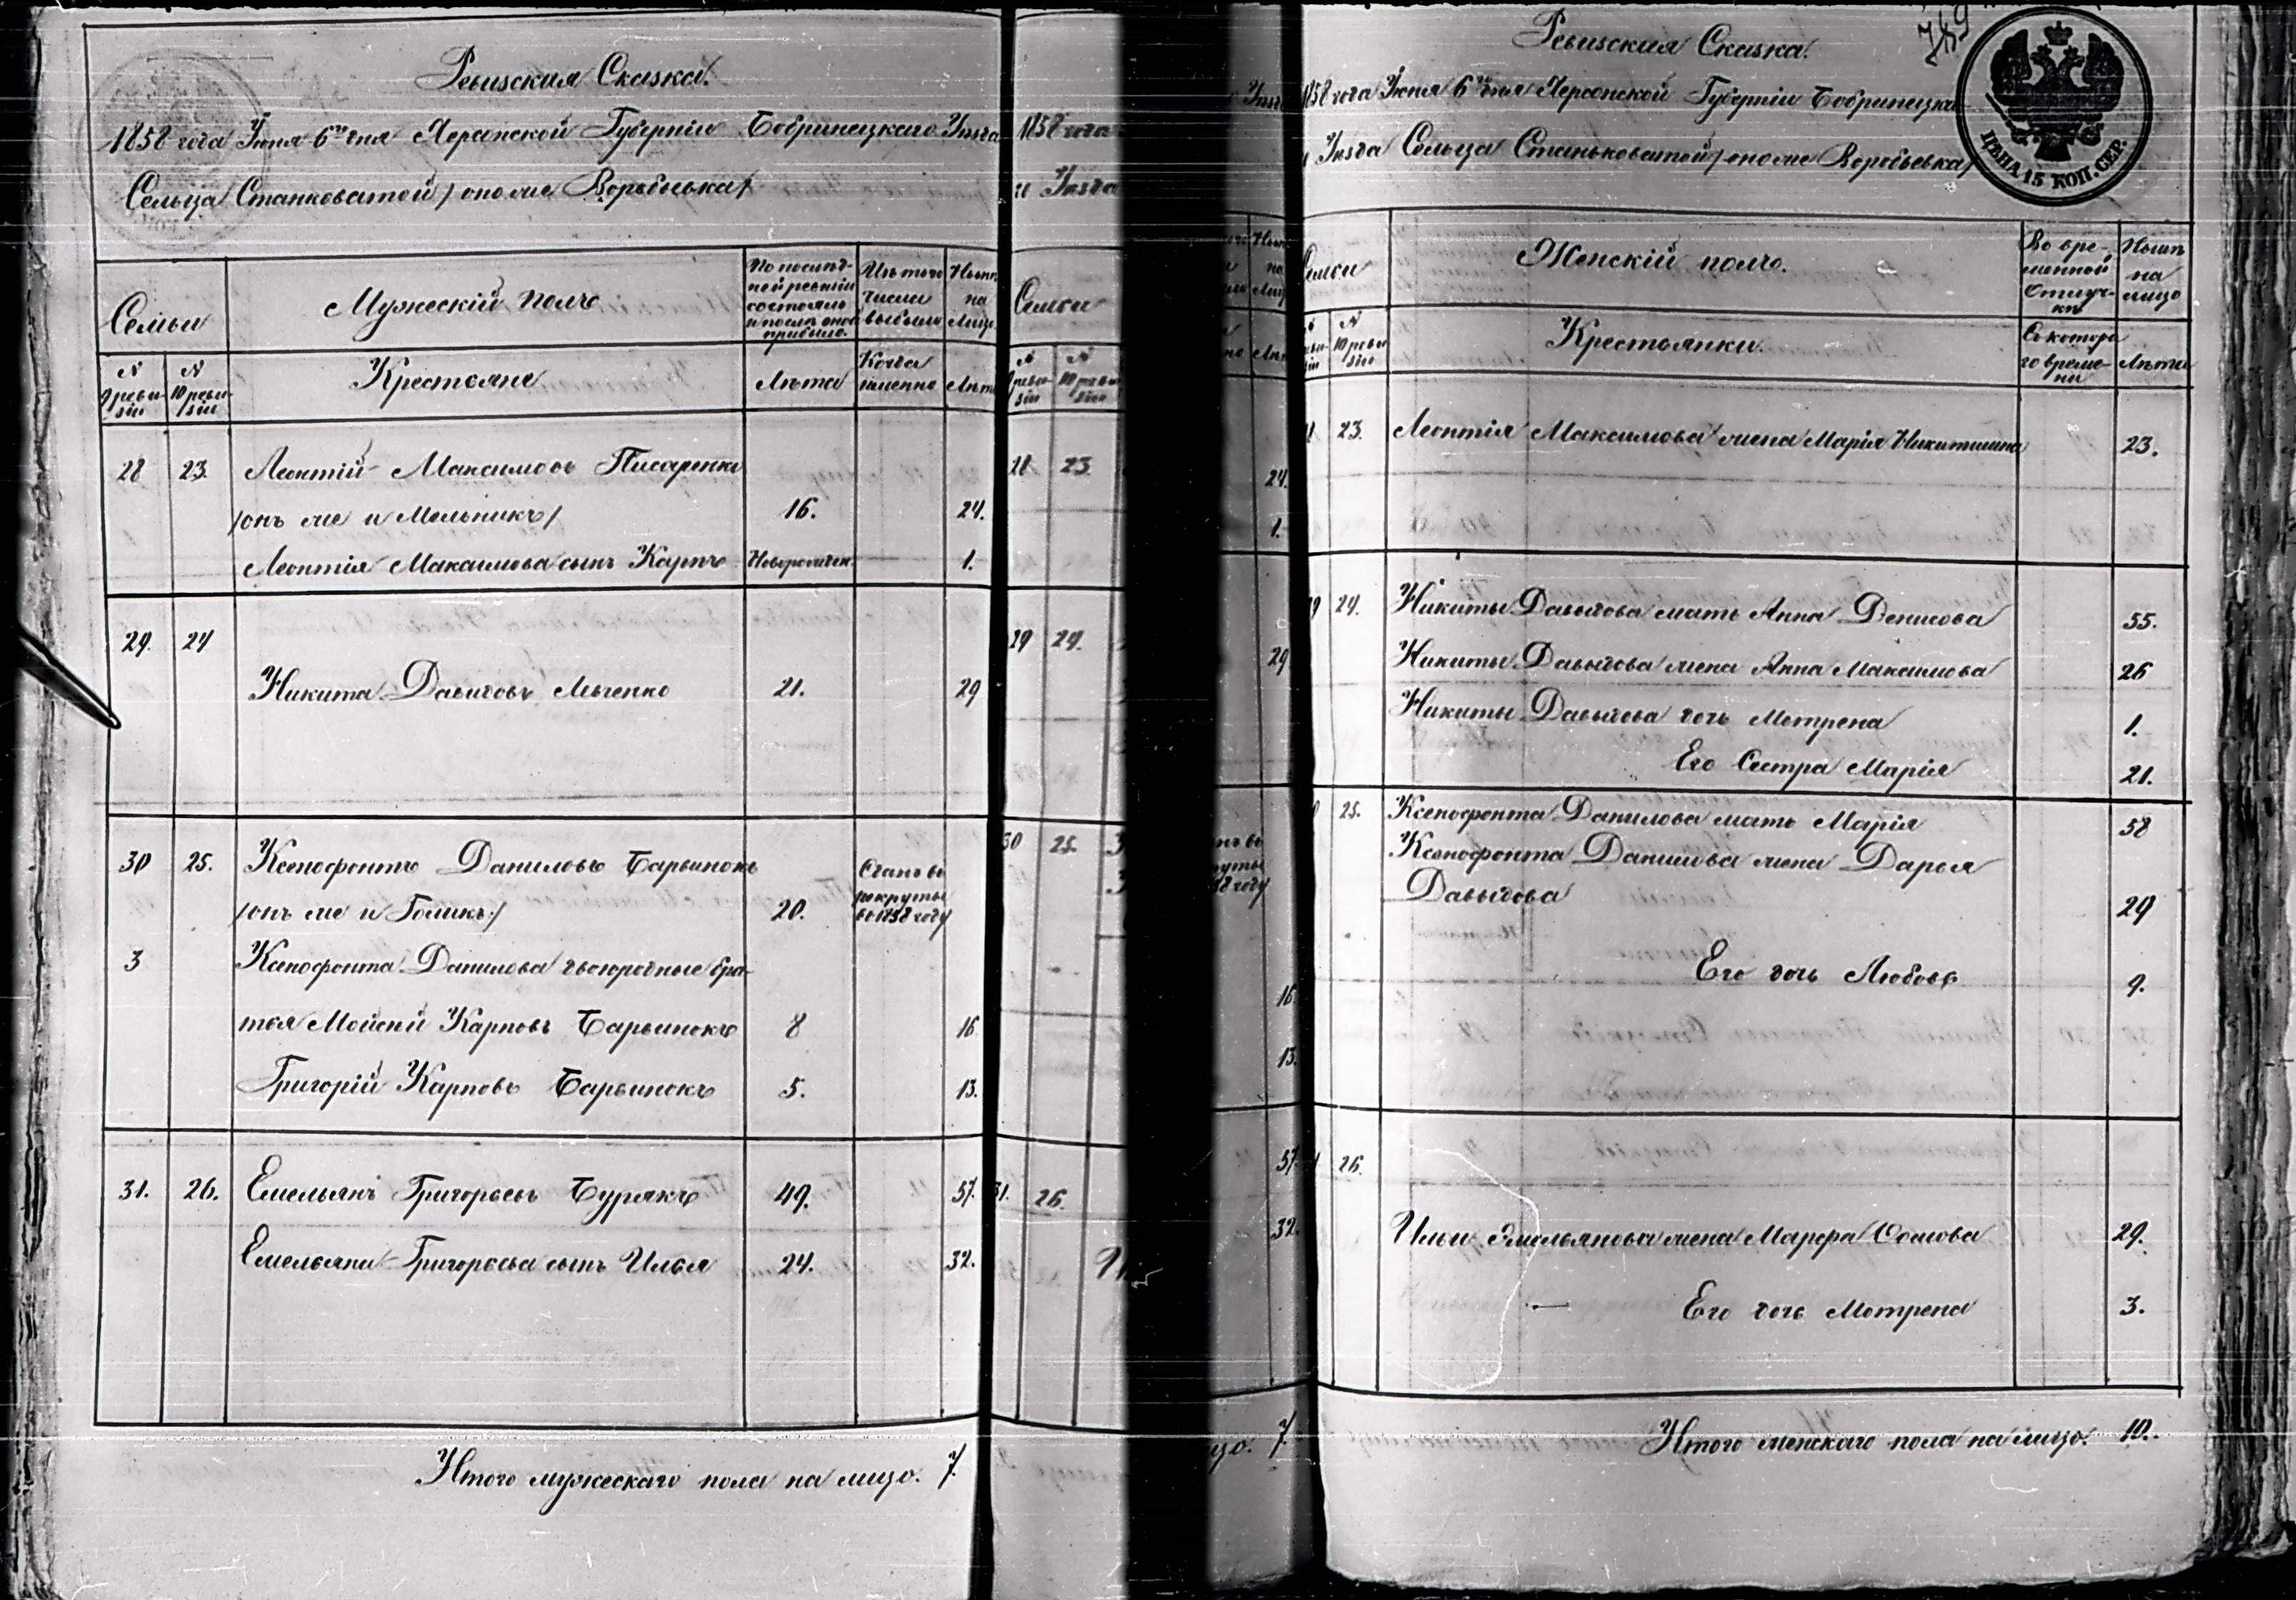 Ревизская Сказка.
1858 года Июня 6го дня Херсонской Губерніи Бобринецкаго Уѣзда
Сельца Станковатой /оно же Воробьевка/
Семьи
Мужескій полъ
По послѣд-
ней ревизіи
состояло
и послѣ оной
прибыло.
Изъ того
числа
выбыло
Нынѣ
на
Лицо
№
9 реви-
зіи
№
10 реви-
зіи
Крестьяне
Лѣта
Когда
именно
Лѣта
28 23. Леонтій Максимовъ Писаренко
/онъ же и Мельникъ/ 16. 24.
Леонтія Максимова сынъ Карпъ Новорожден. 1.
29. 24
Никита Давидовъ 21. 29
30 25. Ксенофонтъ Даниловъ Барвинокъ
/онъ же и Голикъ:/ 20.
Сданъ въ
рекруты
въ 1858 году
3 Ксенофонта Данилова двоюродные бра-
тья Мойсей Карповъ Барвинокъ 8 16
Григорій Карповъ Барвинокъ 5. 13.
31. 26. Емельянъ Григорьевъ Бурякъ 49. 57.
Емельяна Григорьева сынъ Илья 24. 32.
Итого мужескаго пола на лицо. 7.
1858 года
Уѣзда
Семьи
№
9 реви-
зіи
№
10 реви-
зіи
28 23.
29 24.
30 25.
31. 26.
24.
1.
29
16
13.
57
32.
7.
789
Ревизская Сказка.
1858 года Июня 6го дня Херсонской Губерніи Бобринецка
Уѣзда Сельца Станьковатой /оно же Воробьевка/
ЦѢНА 15 КОП. СЕР.
Семьи
Женскій полъ.
Во вре-
менной
отлуч-
кѣ
Нынѣ
на
лицо
№
10 реви-
зіи
Крестьянки.
Съ котора-
го време-
ни
Лѣта
23. Леонтія Максимова жена Марія Никитишна 23.
24. Никиты Давыдова мать Анна Денисова 55.
Никиты Давыдова жена Анна Максимова 26
Никиты Давыдова дочь Мотрена 1.
Его Сестра Марія 21.
25. Ксенофонта Данилова мать Марія 58
Ксенофонта Данилова жена Дарья
Давыдова 29
Его дочь Любовь 9.
26.
Ильи Емельянова жена Марфа Сомова 29.
Его дочь Мотрена 3.
Итого женскаго пола на лицо. 10.